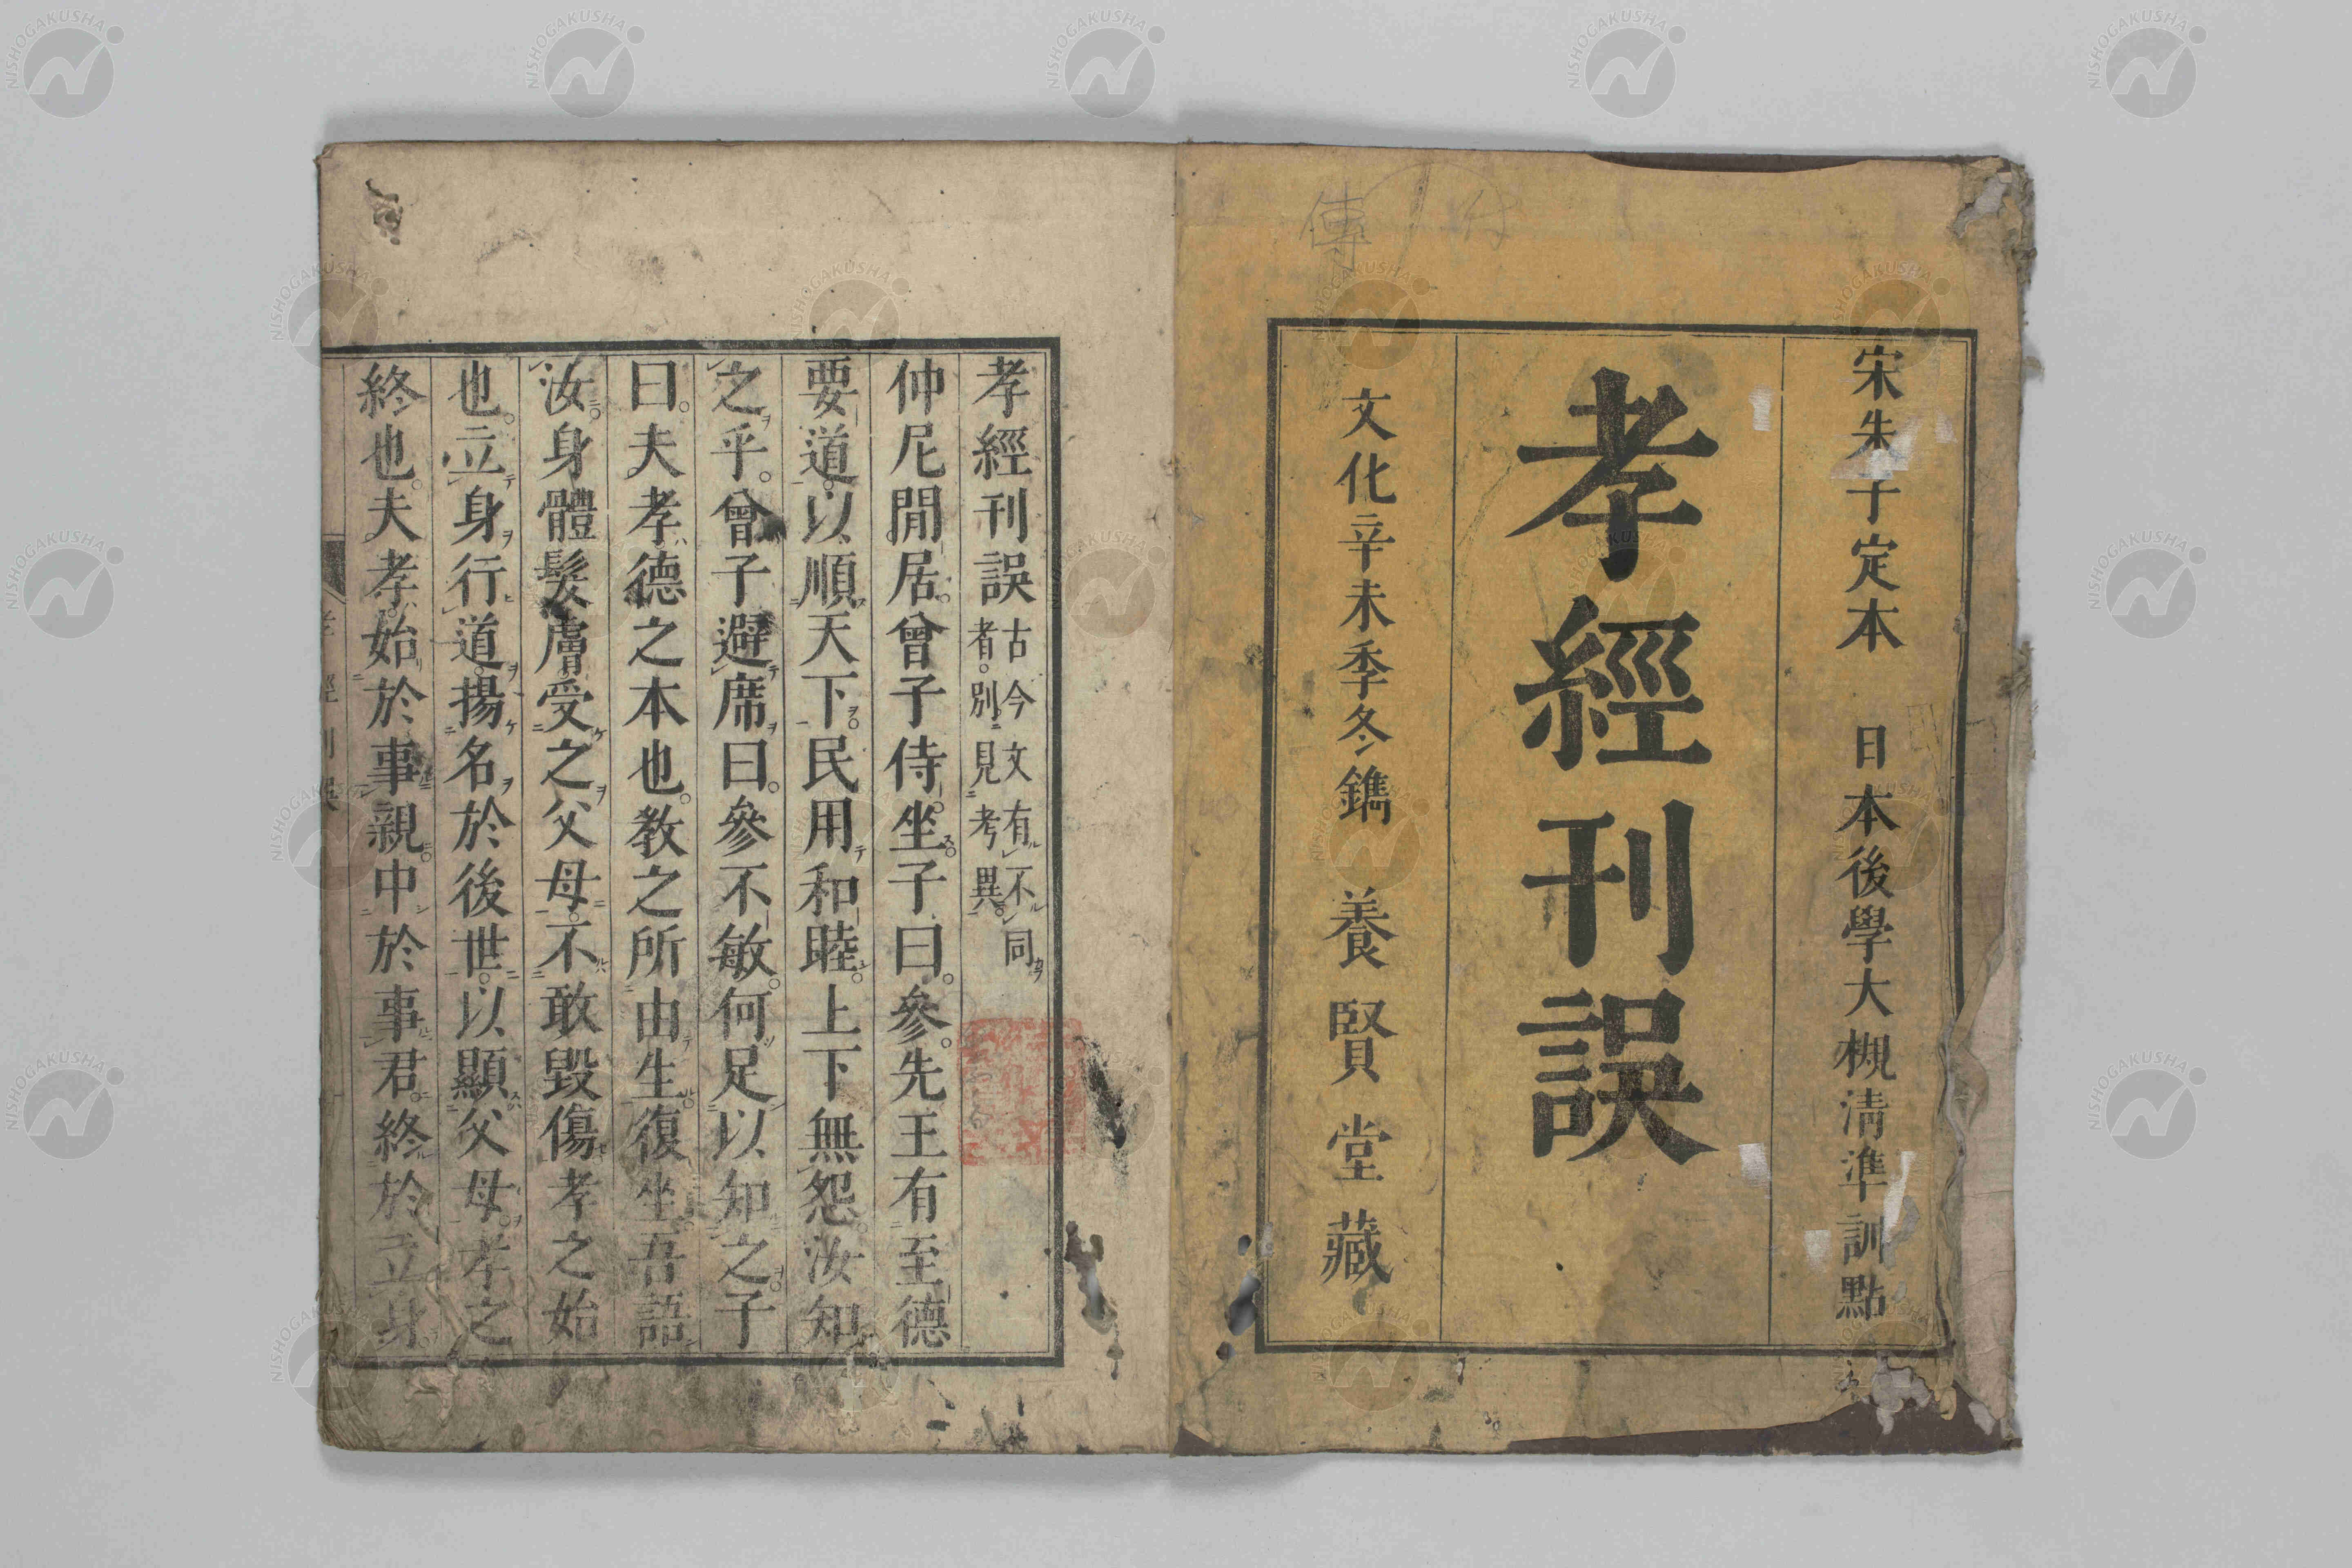 宋朱子定本 日本後學大槻清準訓點
孝經刊誤
文化辛未季冬鐫 養賢堂藏
傳
孝經刊誤 古今文有不同
者別見考異
仲尼閒居。曾子侍坐。子曰。參。先王有至德
要道。以順天下。民用和睦。上下無怨。汝知
之乎。曾子避席曰。參不敏。何足以知之。子
曰。夫孝德之本也。教之所由生。復坐。吾語
汝。身體髮膚受之父母。不敢毀傷孝之始
也。立身行道。揚名於後世。以顯父母。孝之
終也。夫孝。始於事親。中於事君。終於立身。
孝經刊誤
NISHOGAKUSHA